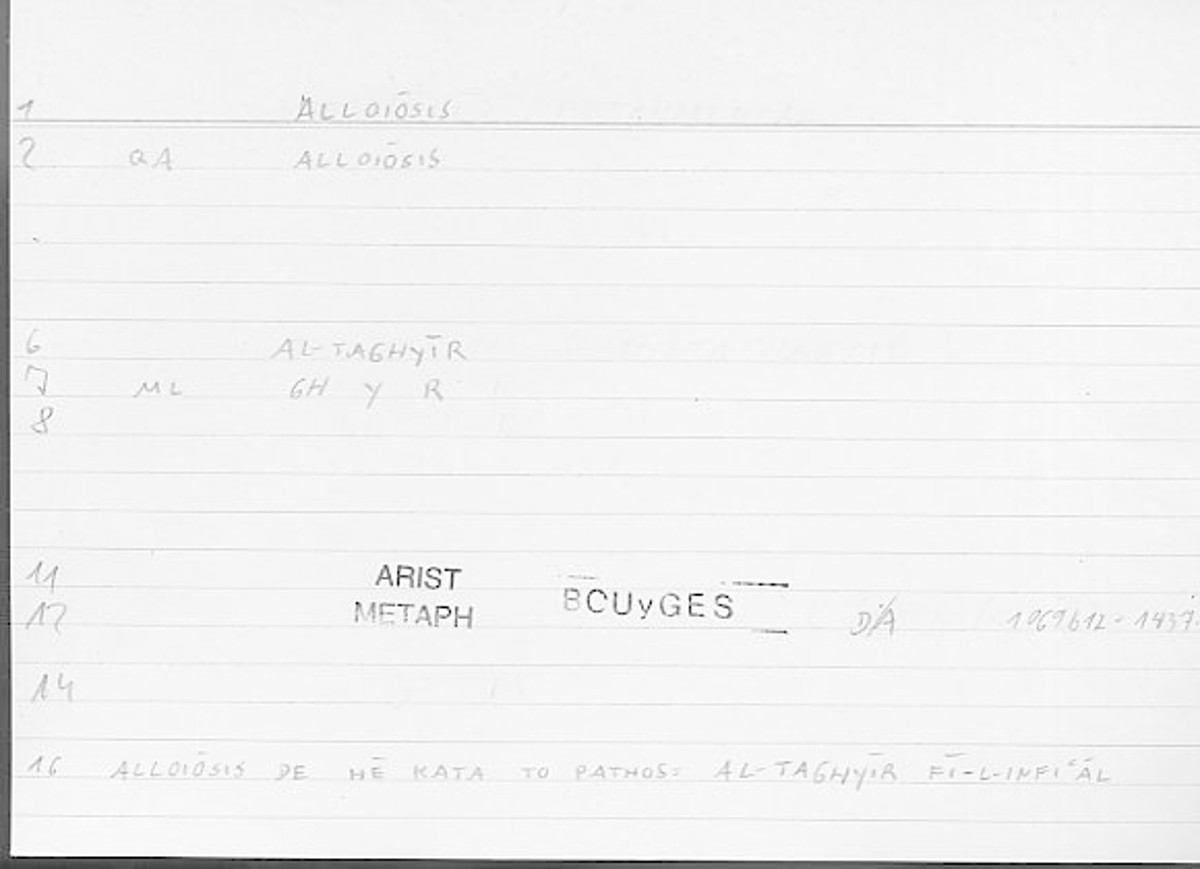 1 ALLOIŌSIS
2 QA ALLOIŌSIS
6 AL-TAGHYĪR
7 ML GH Y R
8
11 ARIST
12 METAPH BOUyGES DA 1069b12 = 1437
14
16 ALLOIŌSIS DE HĒ KATA TO PATHOS: AL-TAGHYĪR FĪ-L-INFIʿĀL